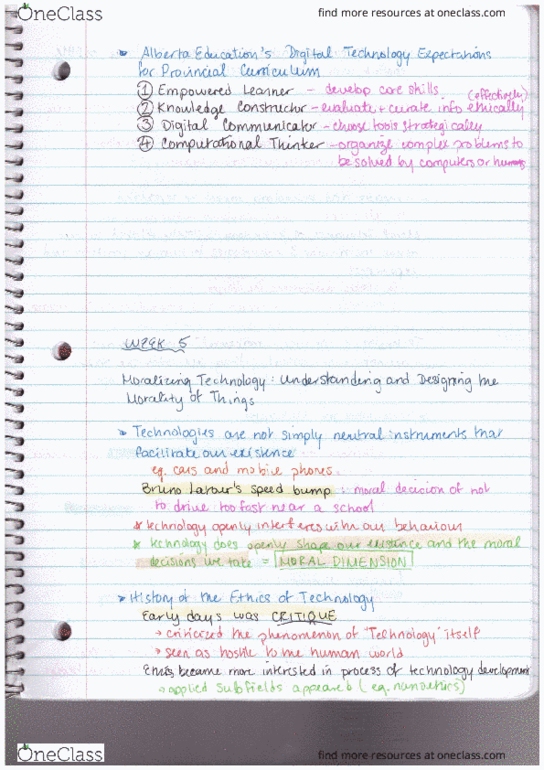 OneClass
find more resources at oneclass.com
Alberta Education's Digital Technology Expectations
for Provincial Curriculum
① Empowered Learner - develop core skills
(effectively)
② Knowledge Constructor - evaluate + curate info ethically
③ Digital Communicator - choose tools strategically
④ Computational Thinker - organize complex problems to
be solved by computers or humans
WEEK 5
Moralizing Technology: Understanding and Designing the
Morality of Things
Technologies are not simply neutral instruments that
facilitate our existence
eg. cars and mobile phones.
Bruno Latour's speed bump : moral decision of not
to drive too fast near a school
* technology openly interferes with our behaviour
* technology does openly shape our existence and the moral
decisions we take = MORAL DIMENSION
History of the Ethics of Technology
Early days was CRITIQUE
→ criticized the phenomenon of "Technology" itself
→ seen as hostile to the human world
Ethics became more interested in process of technology development
applied subfields appeared (eg. nanoethics)
OneClass
find more resources at oneclass.com